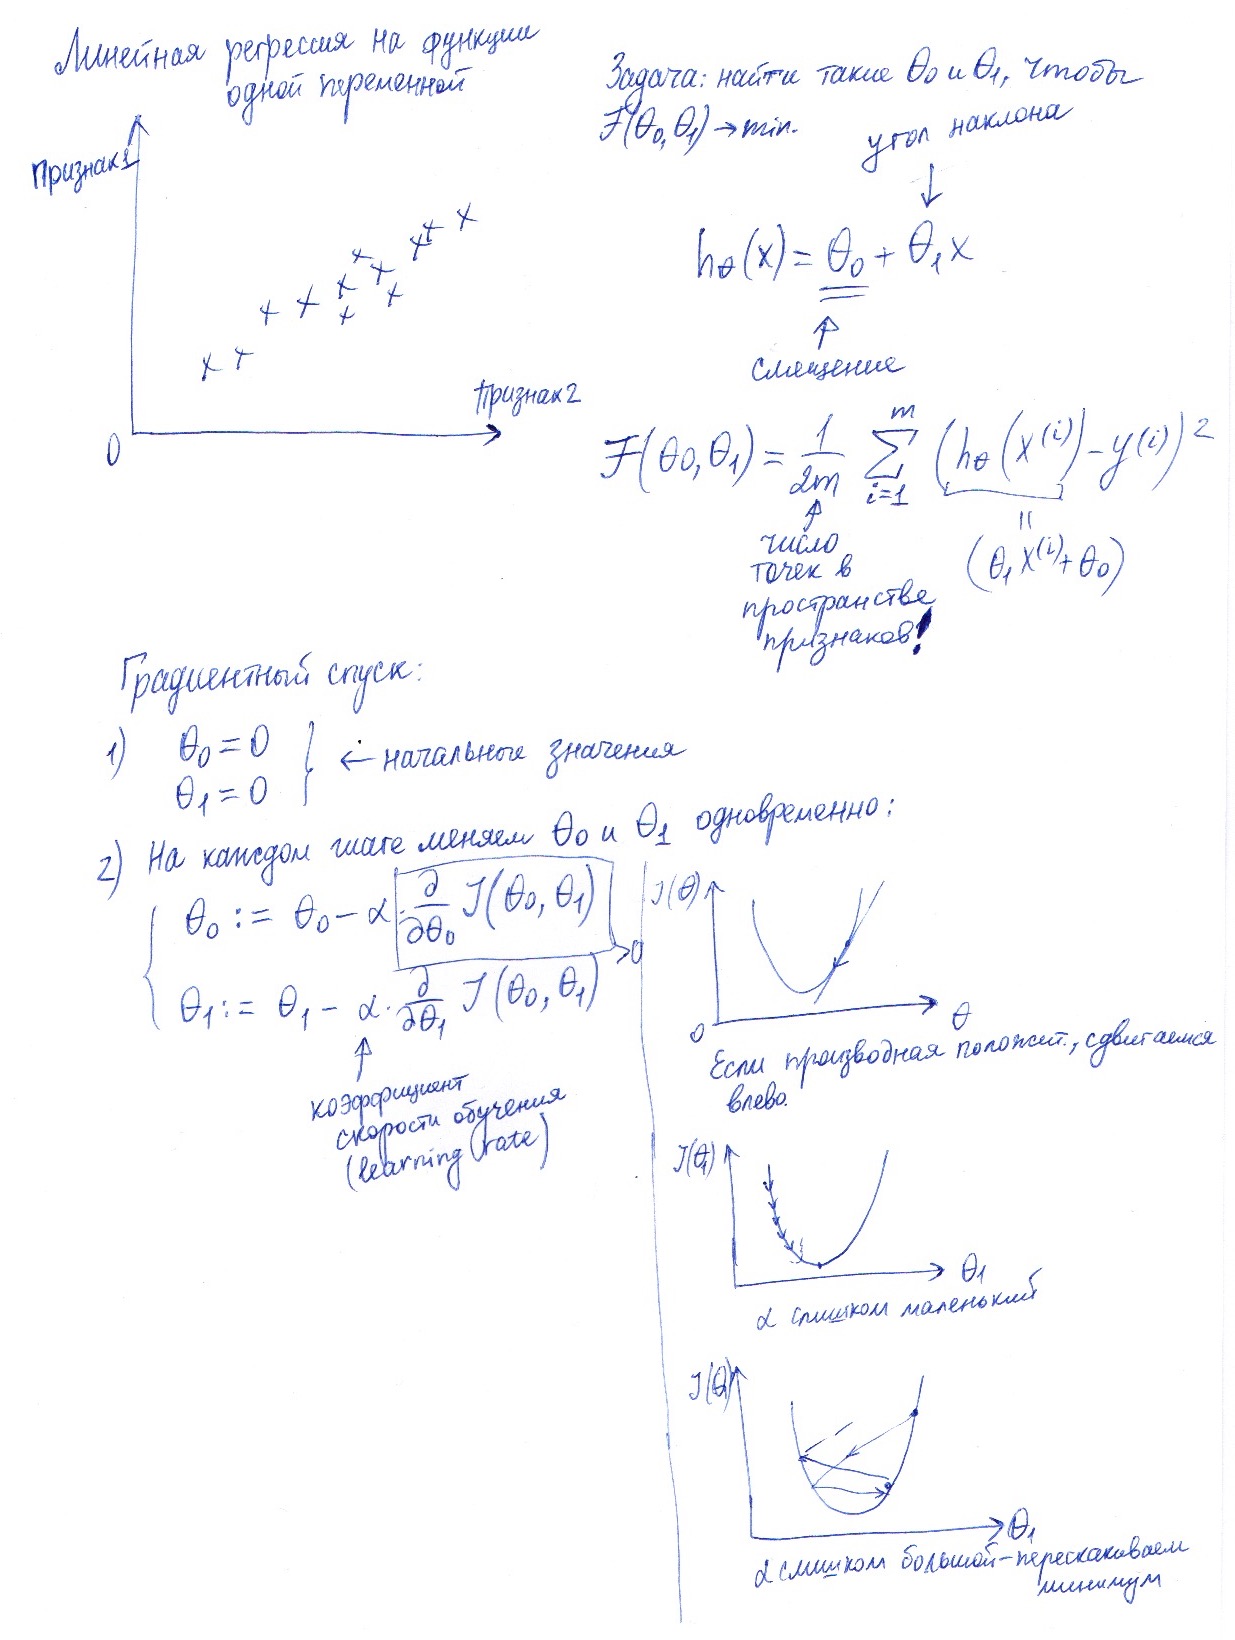 Линейная регрессия на функции
одной переменной
Признак 1
Признак 2
0
Задача: найти такие θ0 и θ1, чтобы
F(θ0, θ1) → min.
угол наклона
hθ(x) = θ0 + θ1 x
смещение
F(θ0, θ1) = 1/2m ∑ i=1 m (hθ(x^(i)) - y^(i))^2
=
(θ1 x^(i) + θ0)
число
точек в
пространстве
признаков!
Градиентный спуск:
1) θ0 = 0
θ1 = 0
← начальные значения
2) На каждом шаге меняем θ0 и θ1 одновременно:
θ0 := θ0 - α · ∂/∂θ0 J(θ0, θ1)
→ 0
θ1 := θ1 - α · ∂/∂θ1 J(θ0, θ1)
коэффициент
скорости обучения
(learning rate)
J(θ)
0
θ
Если производная положит., сдвигаемся
влево.
J(θ1)
θ1
α слишком маленький
J(θ1)
θ1
α слишком большой - перескакиваем
минимум